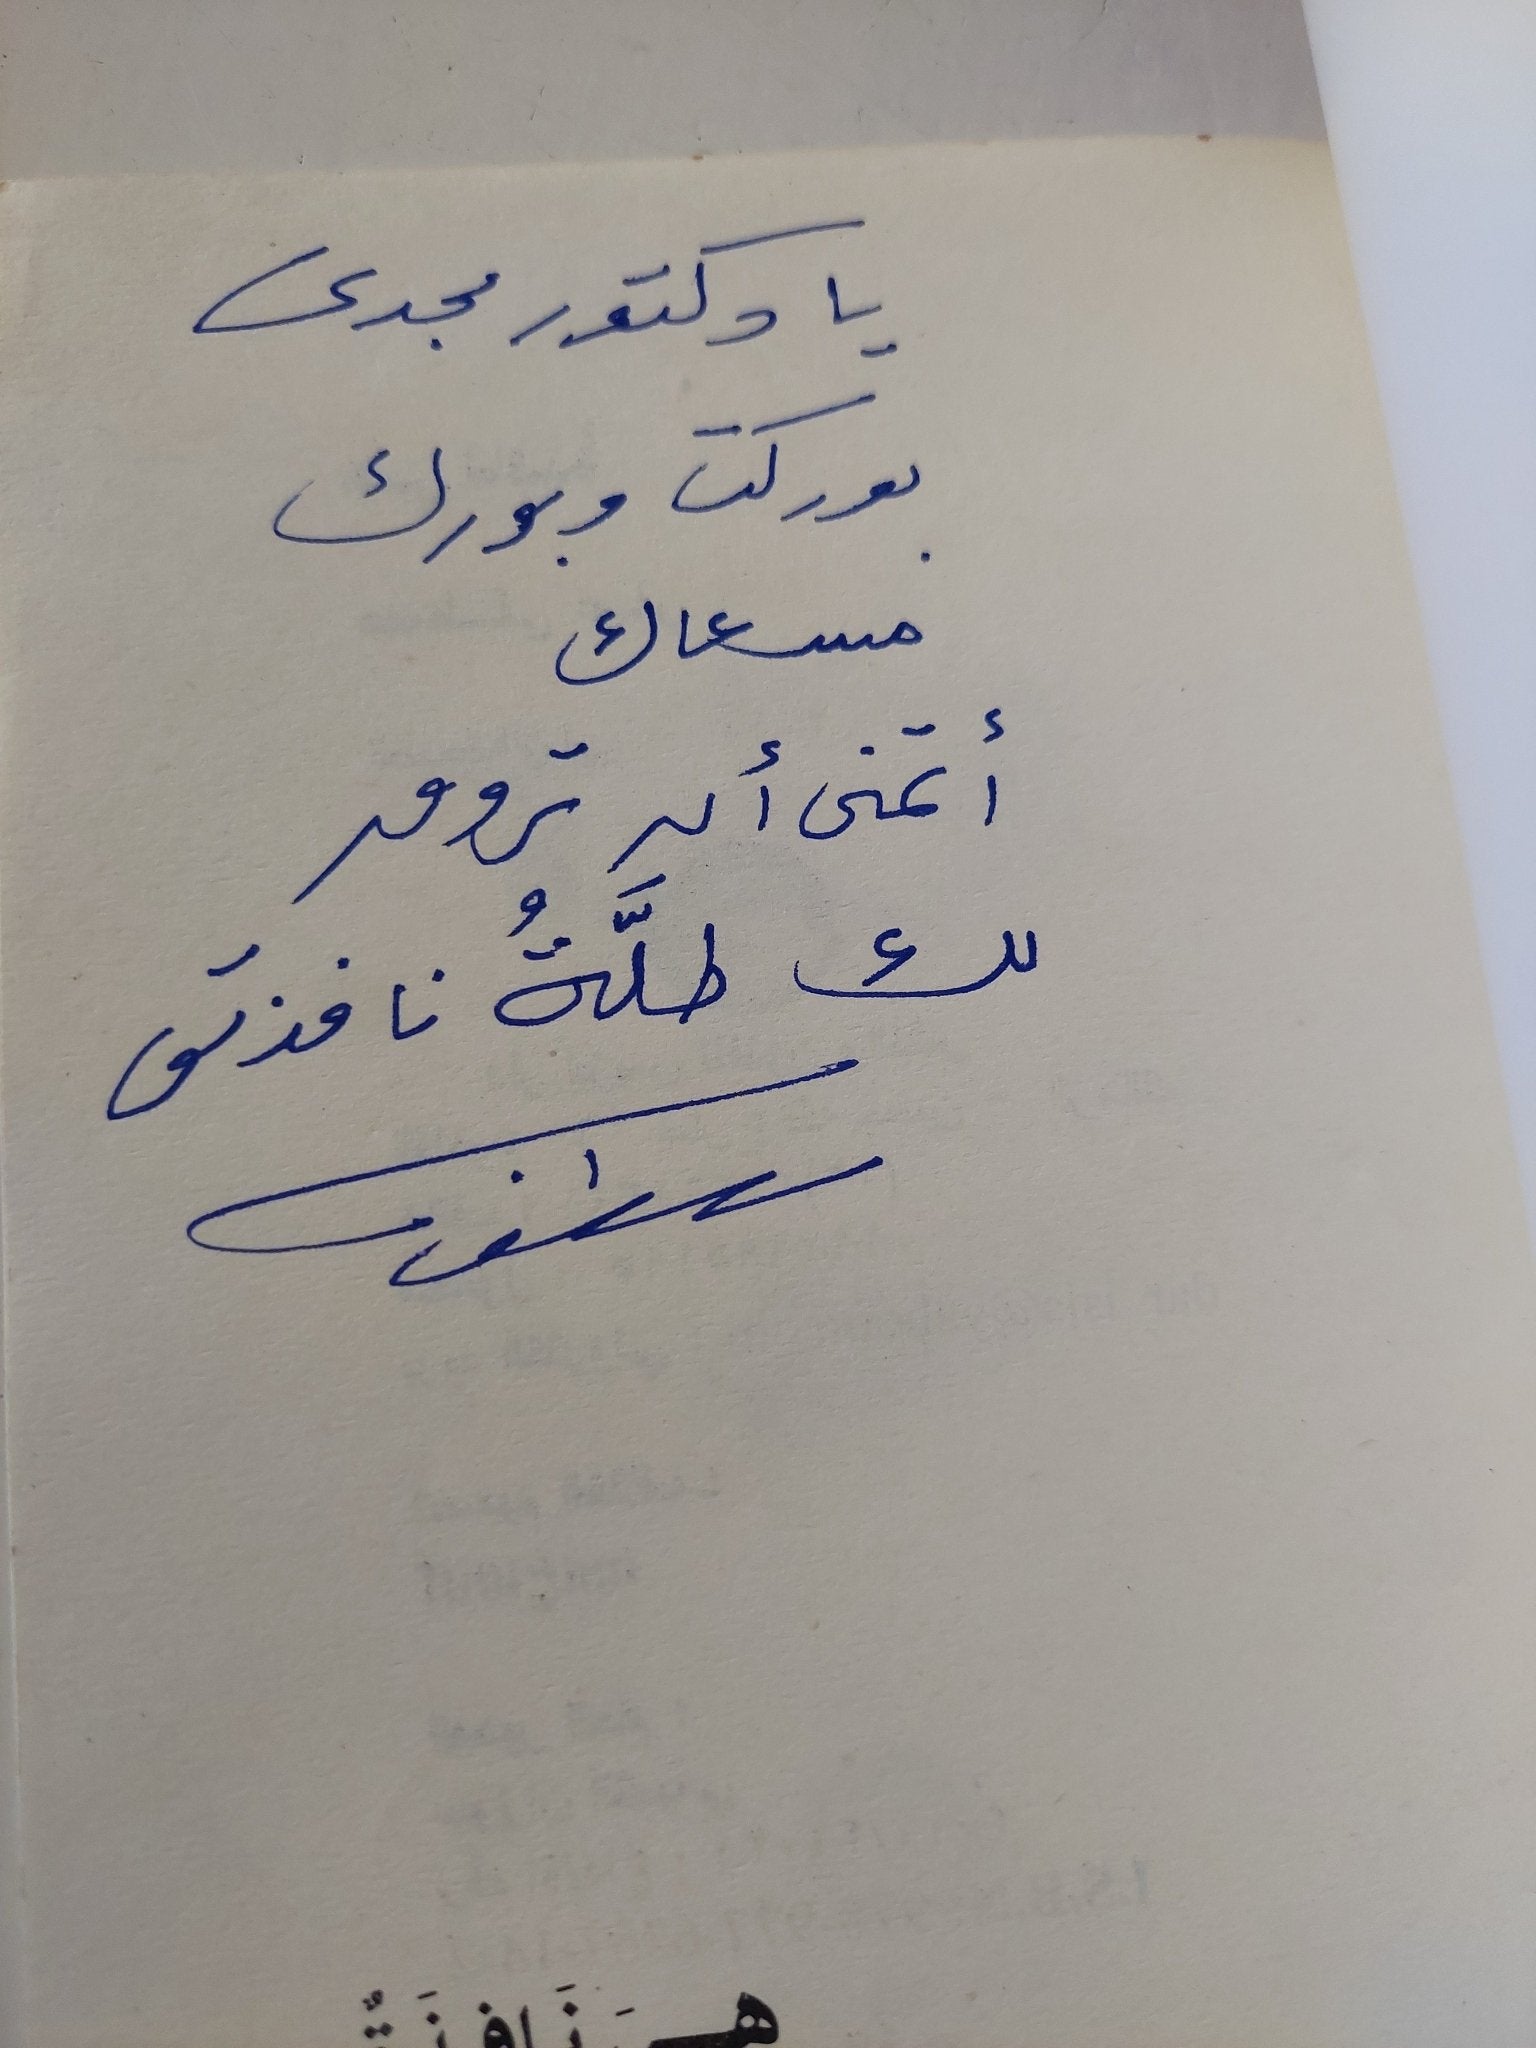 يا دكتور مجدى
بوركت وبورك
مسعاك
أتمنى أن تروق
لك طلَّةُ نافذتى
هِيَ نَافِذَةٌ